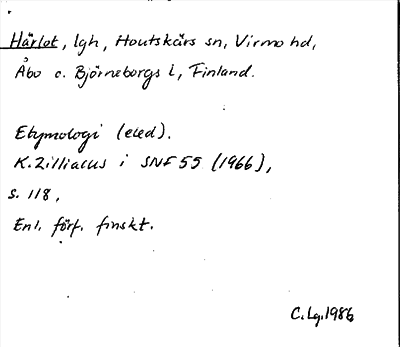 Härlot, lgh, Houtskärs sn, Virmo hd,
Åbo o. Björneborgs l, Finland.
Etymologi (eled).
K. Zilliacus i SNF 55 (1966),
s. 118,
Enl. förf. finskt.
C. Lg. 1986